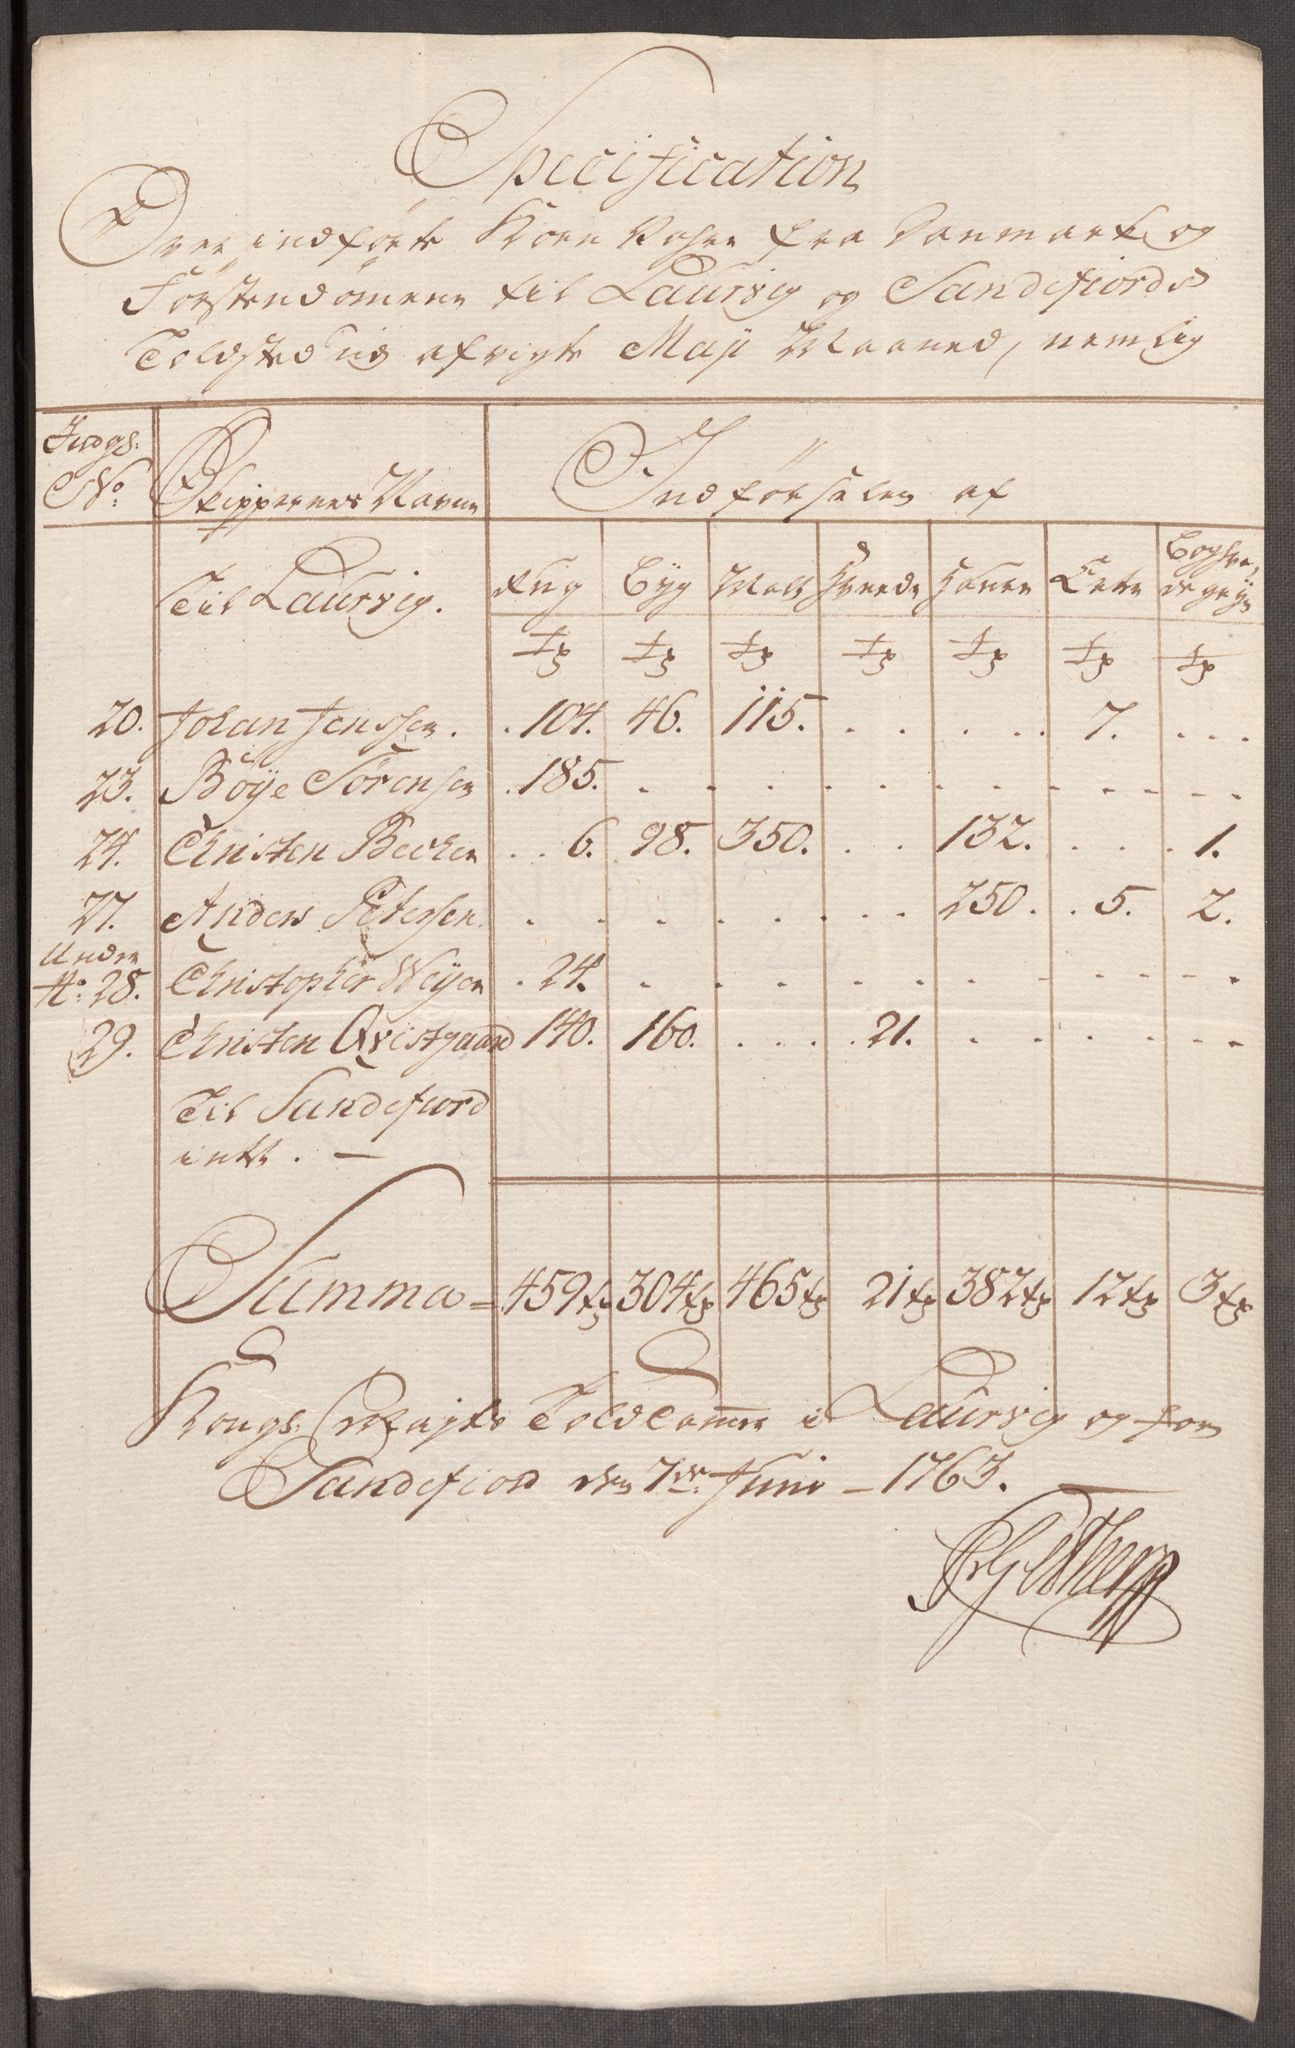 Specification
Over indførte Korn Vahre fra Danmark og
Førstendømene til Laurvig og Sandefiords
Toldsted udi afvigte Maji Maaned, nemlig
Indgs: No: Skippernes Navne Indførselen af
Til Laurvig. Rug Byg Malt Hvede Haver Erter Boghve, de gryn
tr tr tr tr tr tr tr
20. Johan Jenssen. 104. 46. 115. . . 7. . .
23. Böÿe Sörensen . 185. . . . . . .
24. Christen Becker . . 6. 98. 350. . . 132. . . . 1.
27. Anders Petersen. . . . . . 250. . 5. 2.
Under
No: 28. Christopher Weyer . 24. . . . . . .
29. Christen Qvistgaard 140. 160. . . . 21. . . .
Til Sandefiord
intet. —
Summa = 459 tr 304 tr 465 tr 21 tr 382 tr 12 tr 3 tr
Kongs: Mayts Told Camer i Laurvig og for
Sandefiord den 7de Juni – 1763. —